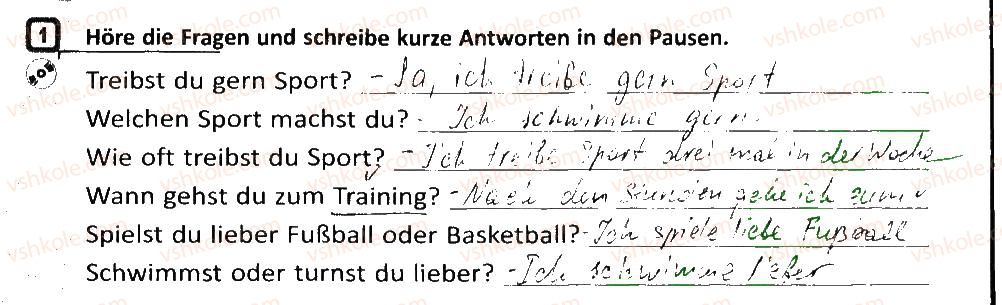 1 Höre die Fragen und schreibe kurze Antworten in den Pausen.
Treibst du gern Sport? - Ja, ich treibe gern Sport
Welchen Sport machst du? - Ich schwimme gern.
Wie oft treibst du Sport? - Ich treibe Sport drei mal in der Woche
Wann gehst du zum Training? - Nach den Stunden gehe ich zum
Spielst du lieber Fußball oder Basketball? - Ich spiele liebe Fußball
Schwimmst oder turnst du lieber? - Ich schwimme lieber